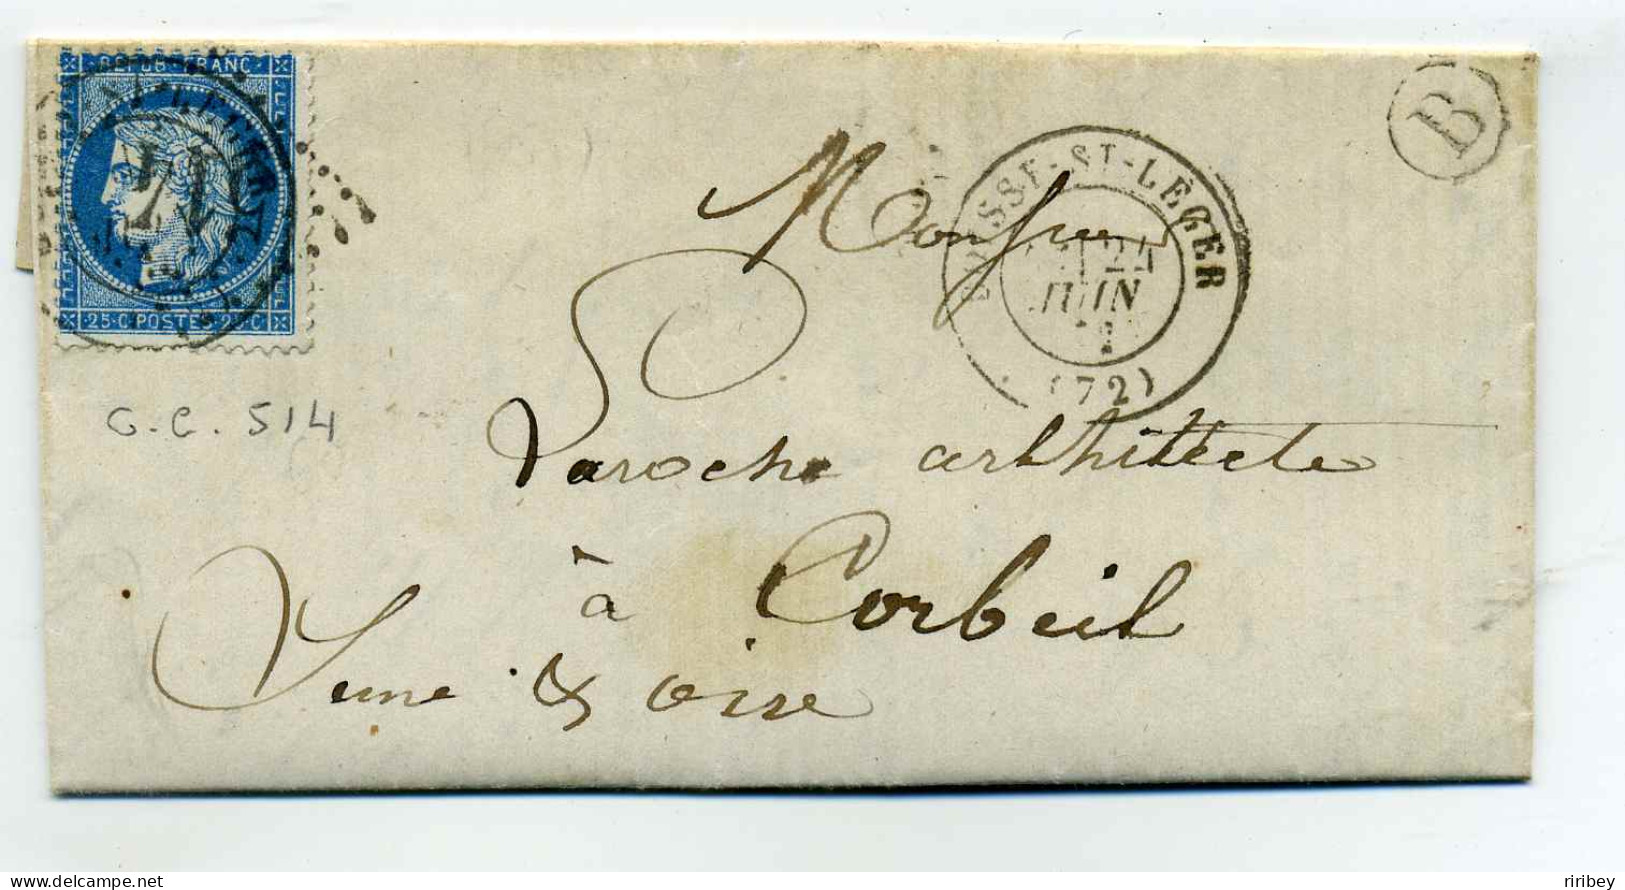 REPUB·FRANC
25·C·POSTES·25·C
B
BOISSY-ST-LÉGER
24
JUIN
(72)
G.C. 514
Monsieur
Laroche architecte
à Corbeil
Seine & oise
delcampe.net
ririBey